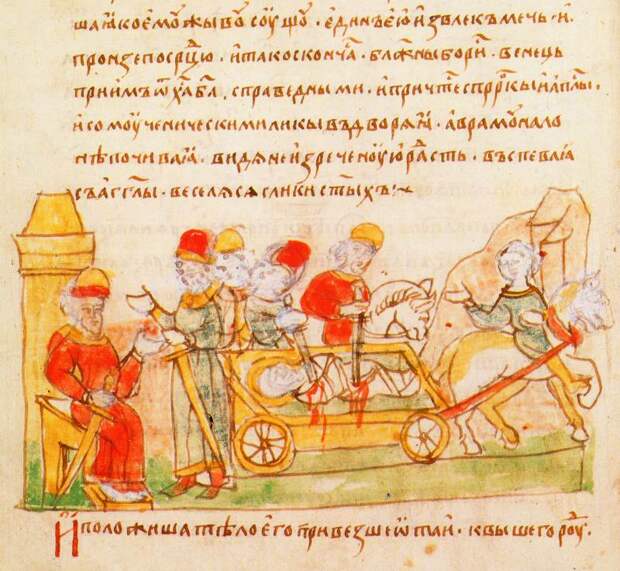 ша ꙗко емоу жывоу соущю · единъ ею извлек мечь · и
пронзе по срцю · и тако сконча · блжныи бори · венець
приимъ ѿ ха ба · с праведными · и причте с прркы и апслы ·
и со моученическими ликы въдворяꙗ · аврамоу на ло
нѣ почиваꙗ · видя неизреченоую расть · въспеваꙗ
съ агглы · веселяся с лики стыхъ :~
И положиша тѣло его привезше ѿтаи · к вышегороу ·